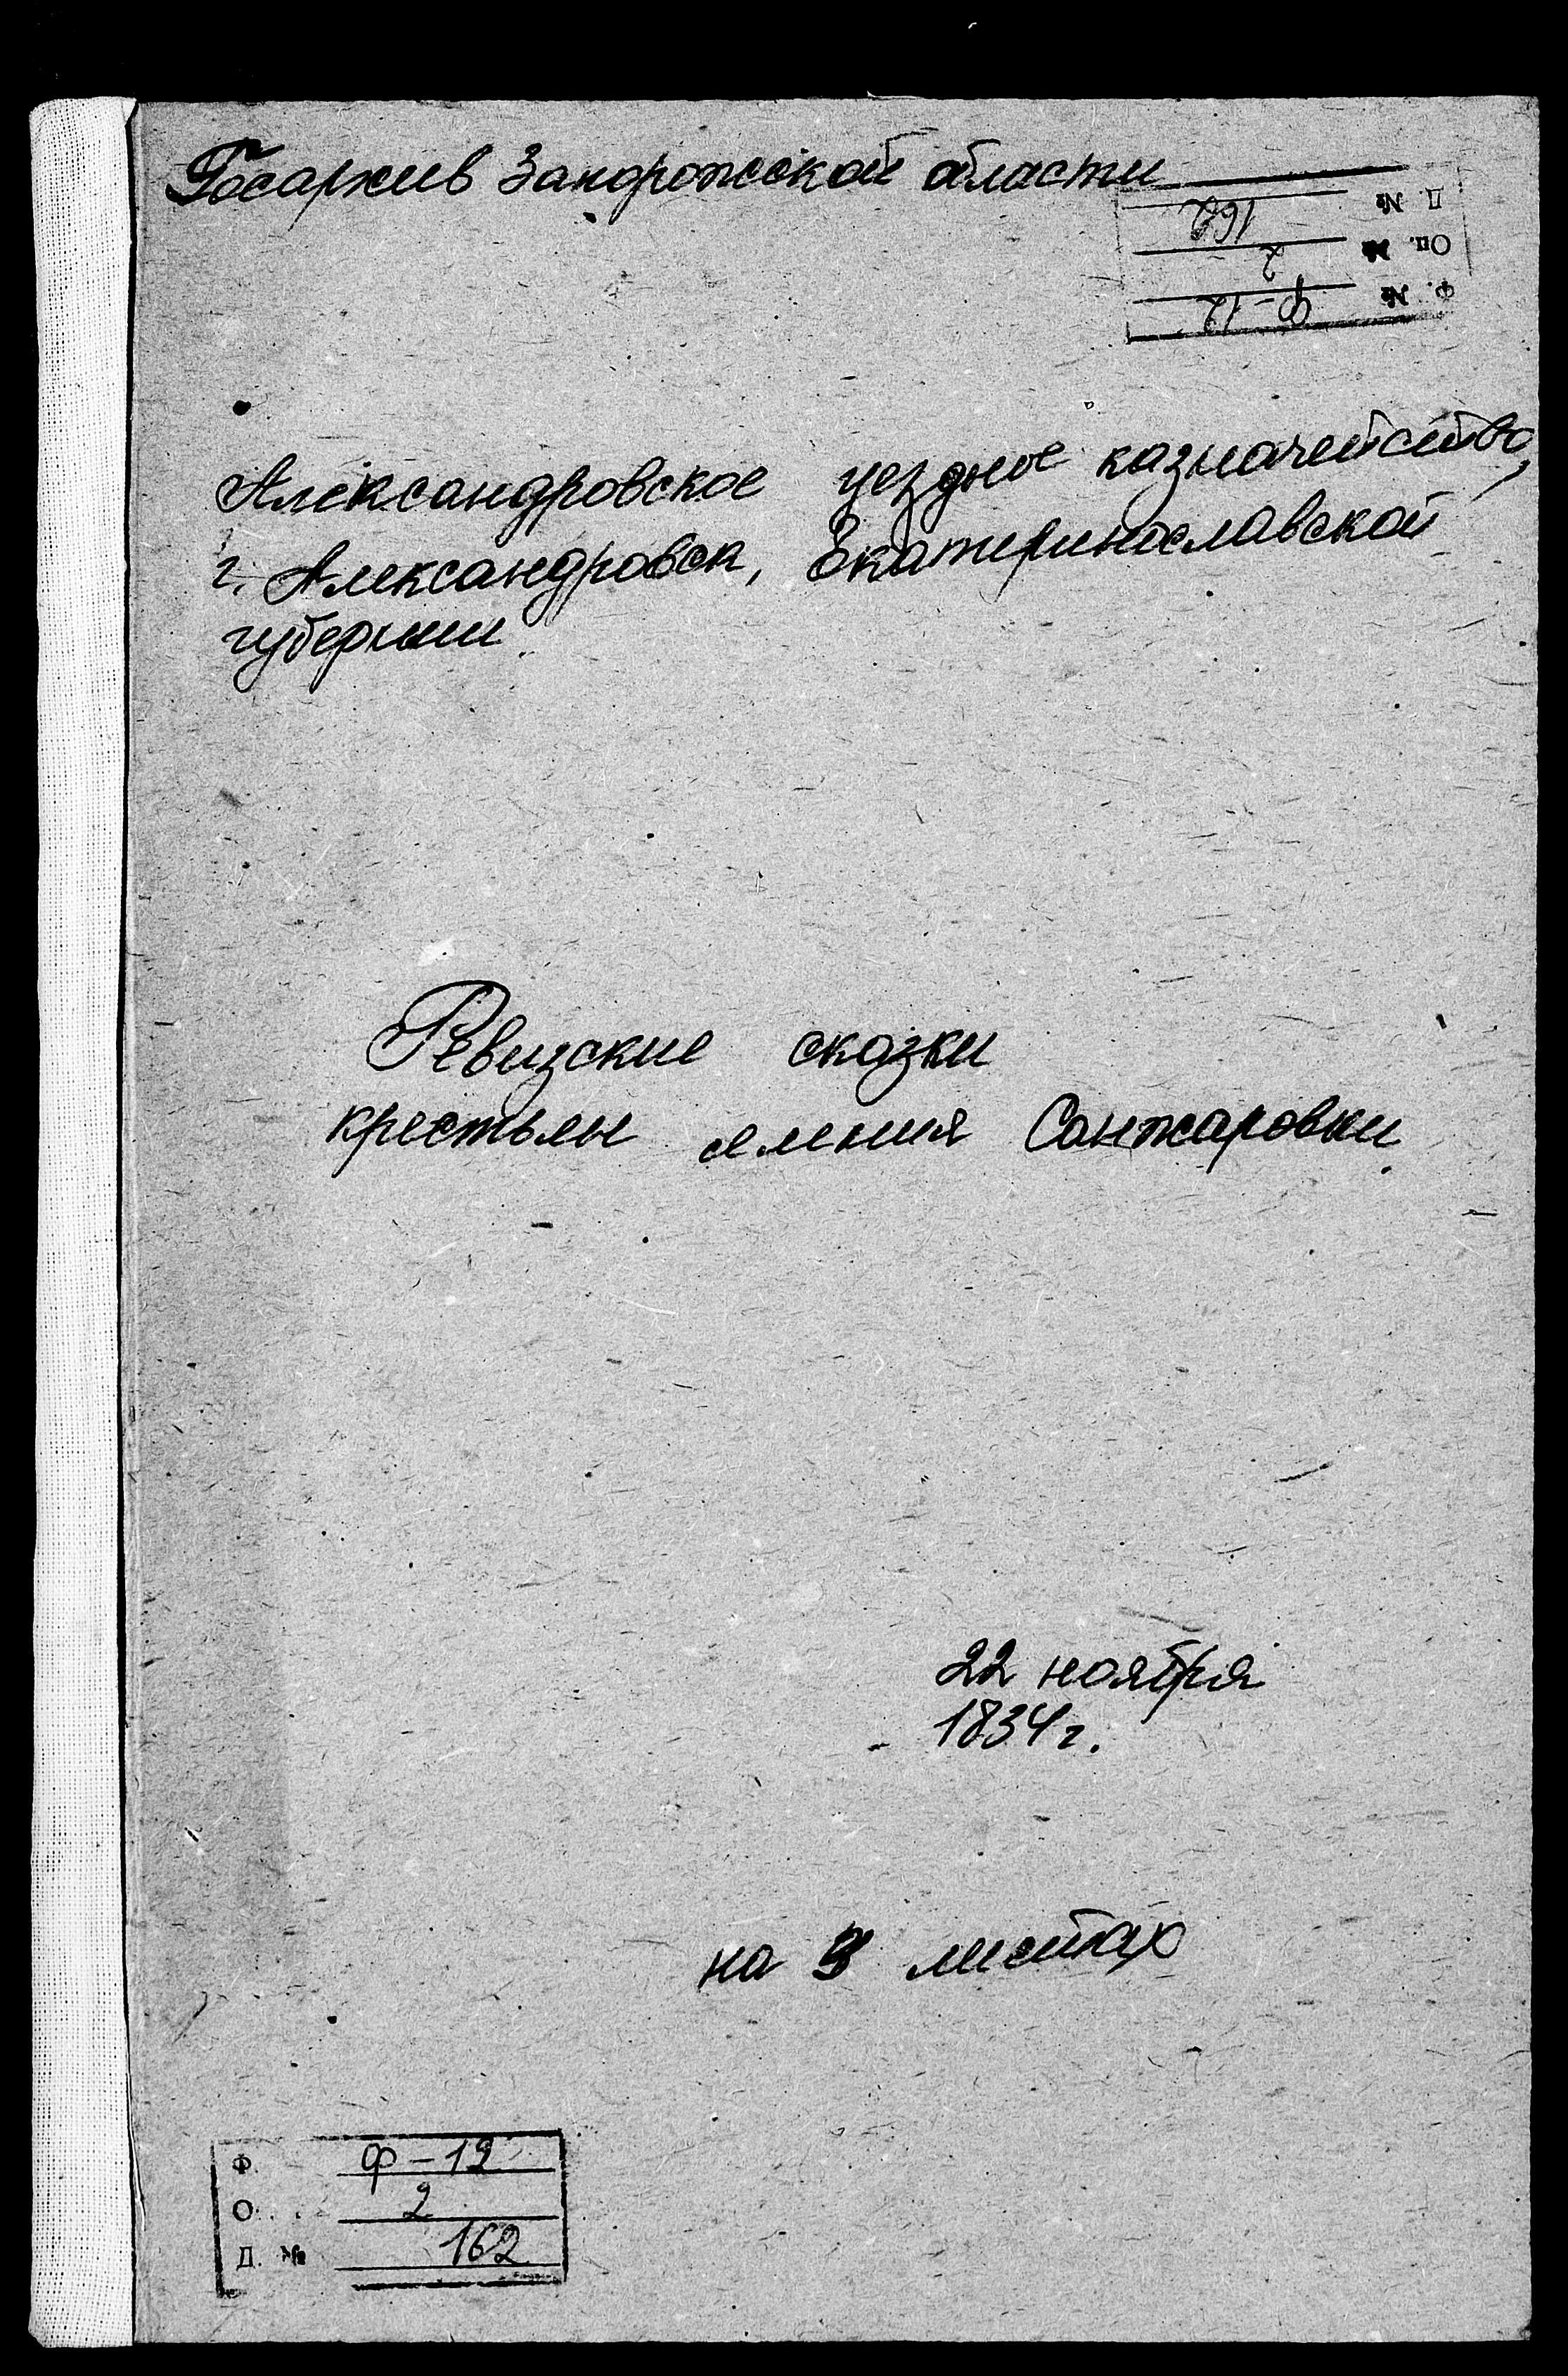 Госархив Запорожской области
Д №162
Оп. № 2
Ф. № Ф-12
Александровское уездное казначейство,
г. Александровск, Екатеринославской
губернии
Ревизские сказки
крестьян имения Санжаровки
22 ноября
1834 г.
на листах
Ф. Ф-12
О. 2
Д. № 162